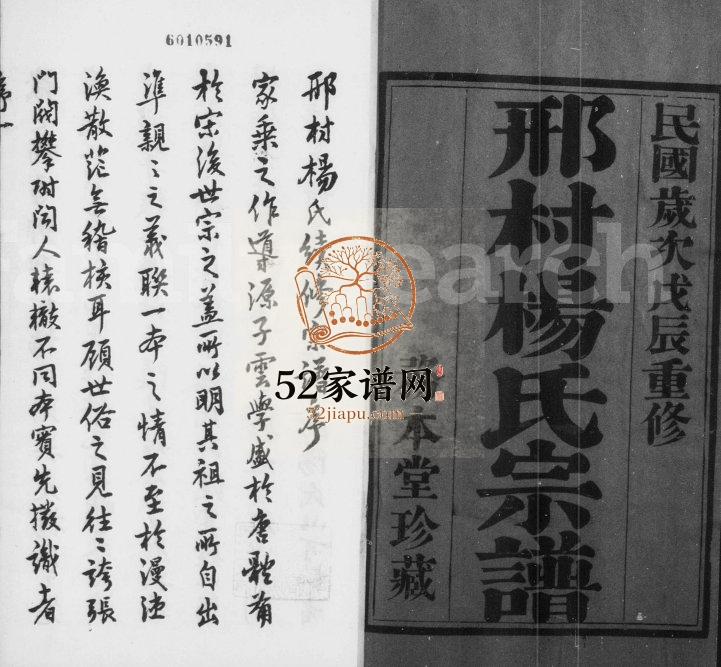 民國歲次戊辰重修
邢村楊氏宗譜
本堂珍藏
6010591
邢村楊氏續修宗譜序
家乘之作導源子雲學盛於唐
於宗後世宗之蓋所以明其祖之所自出
準親〻之義聯一本之情不至於漫
渙散茫無稽核耳顧世俗之見往〻誇張
門閥攀附聞人轅轍不同本實先撥識者
序一
familysearch
52家谱网
52jiapu.com